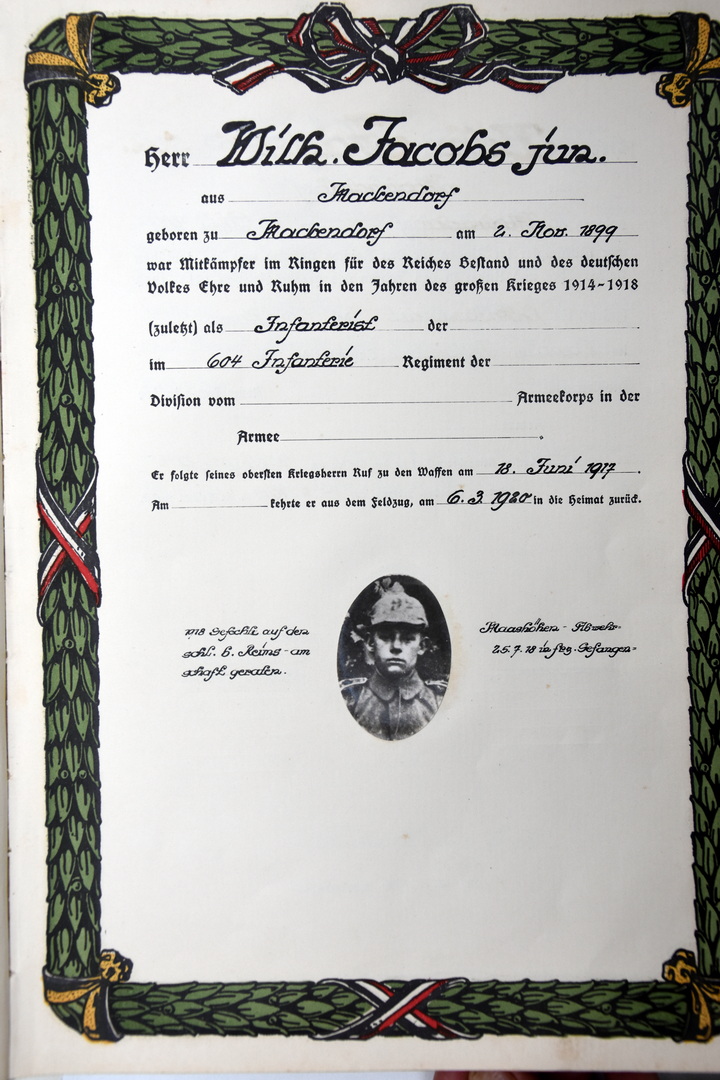 Herr Wilh. Jacobs jun.
aus Mackendorf
geboren zu Mackendorf am 2. Nov. 1899
war Mitkämpfer im Ringen für des Reiches Bestand und des deutschen
Volkes Ehre und Ruhm in den Jahren des großen Krieges 1914-1918
(zuletzt) als Infanterist der
im 604 Infanterie Regiment der
Division vom Armeekorps in der
Armee .
Er folgte seines obersten Kriegsherrn Ruf zu den Waffen am 18. Juni 1917 .
Am kehrte er aus dem Feldzug, am 6.3.1920 in die Heimat zurück.
1918 Gefechte auf den Maashöhen - Abwehr-
schl. b. Reims - am 25.7.18 in frz. Gefangen-
schaft geraten.